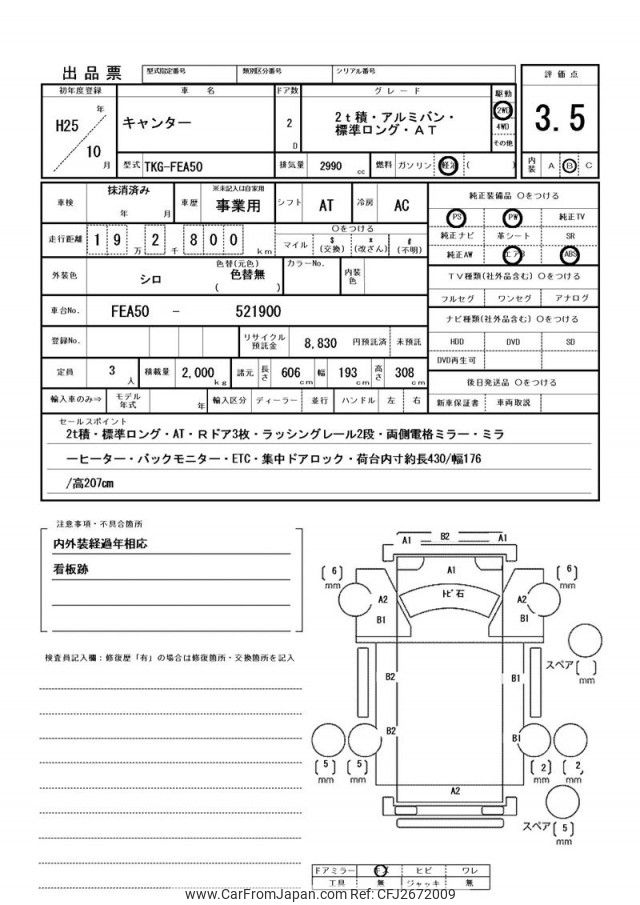 出品票 型式指定番号 類別区分番号 シリアル番号
評価点
3.5
内装 A B C
初年度登録 車名 ドア数 グレード 駆動
H25 年 10 月
キャンター
2 D
2t積・アルミバン・
標準ロング・AT
2WD
4WD
その他
型式 TKG-FEA50 排気量 2990 cc 燃料 ガソリン 軽油 ( )
車検 抹消済み 年 月 車歴 ※未記入は自家用 事業用 シフト AT 冷房 AC
走行距離 19万2千800km
○をつける
マイル $(交換) *(改ざん) #(不明)
外装色 シロ 色替(元色) 色替無 ( ) カラーNo. 内装色
車台No. FEA50 - 521900
登録No. リサイクル預託金 8,830 円預託済 未預託
定員 3 人 積載量 2,000 kg 諸元 長さ 606 cm 幅 193 cm 高さ 308 cm
輸入車のみ⇒ モデル年式 年 輸入区分 ディーラー 並行 ハンドル 左 右
純正装備品 ○をつける
PS PW 純正TV
純正ナビ 革シート SR
純正AW エアB ABS
TV種類(社外品含む) ○をつける
フルセグ ワンセグ アナログ
ナビ種類(社外品含む) ○をつける
HDD DVD SD
DVD再生可
後日発送品 ○をつける
新車保証書 車両取説
セールスポイント
2t積・標準ロング・AT・Rドア3枚・ラッシングレール2段・両側電格ミラー・ミラ
ーヒーター・バックモニター・ETC・集中ドアロック・荷台内寸約長430/幅176
/高207cm
注意事項・不具合箇所
内外装経過年相応
看板跡
検査員記入欄:修復歴「有」の場合は修復箇所・交換箇所を記入
A1 B2 A1
A1
トビ石
(6) mm A2 B1
A2 B1 (6) mm
スペア ( ) mm
B2 B1
B2 B1
(5) mm (5) mm
(2) mm (2, mm
A2
スペア (5) mm
ドアミラー キズ ヒビ ワレ
工具 無 ジャッキ 無
www.CarFromJapan.com Ref: CFJ2672009